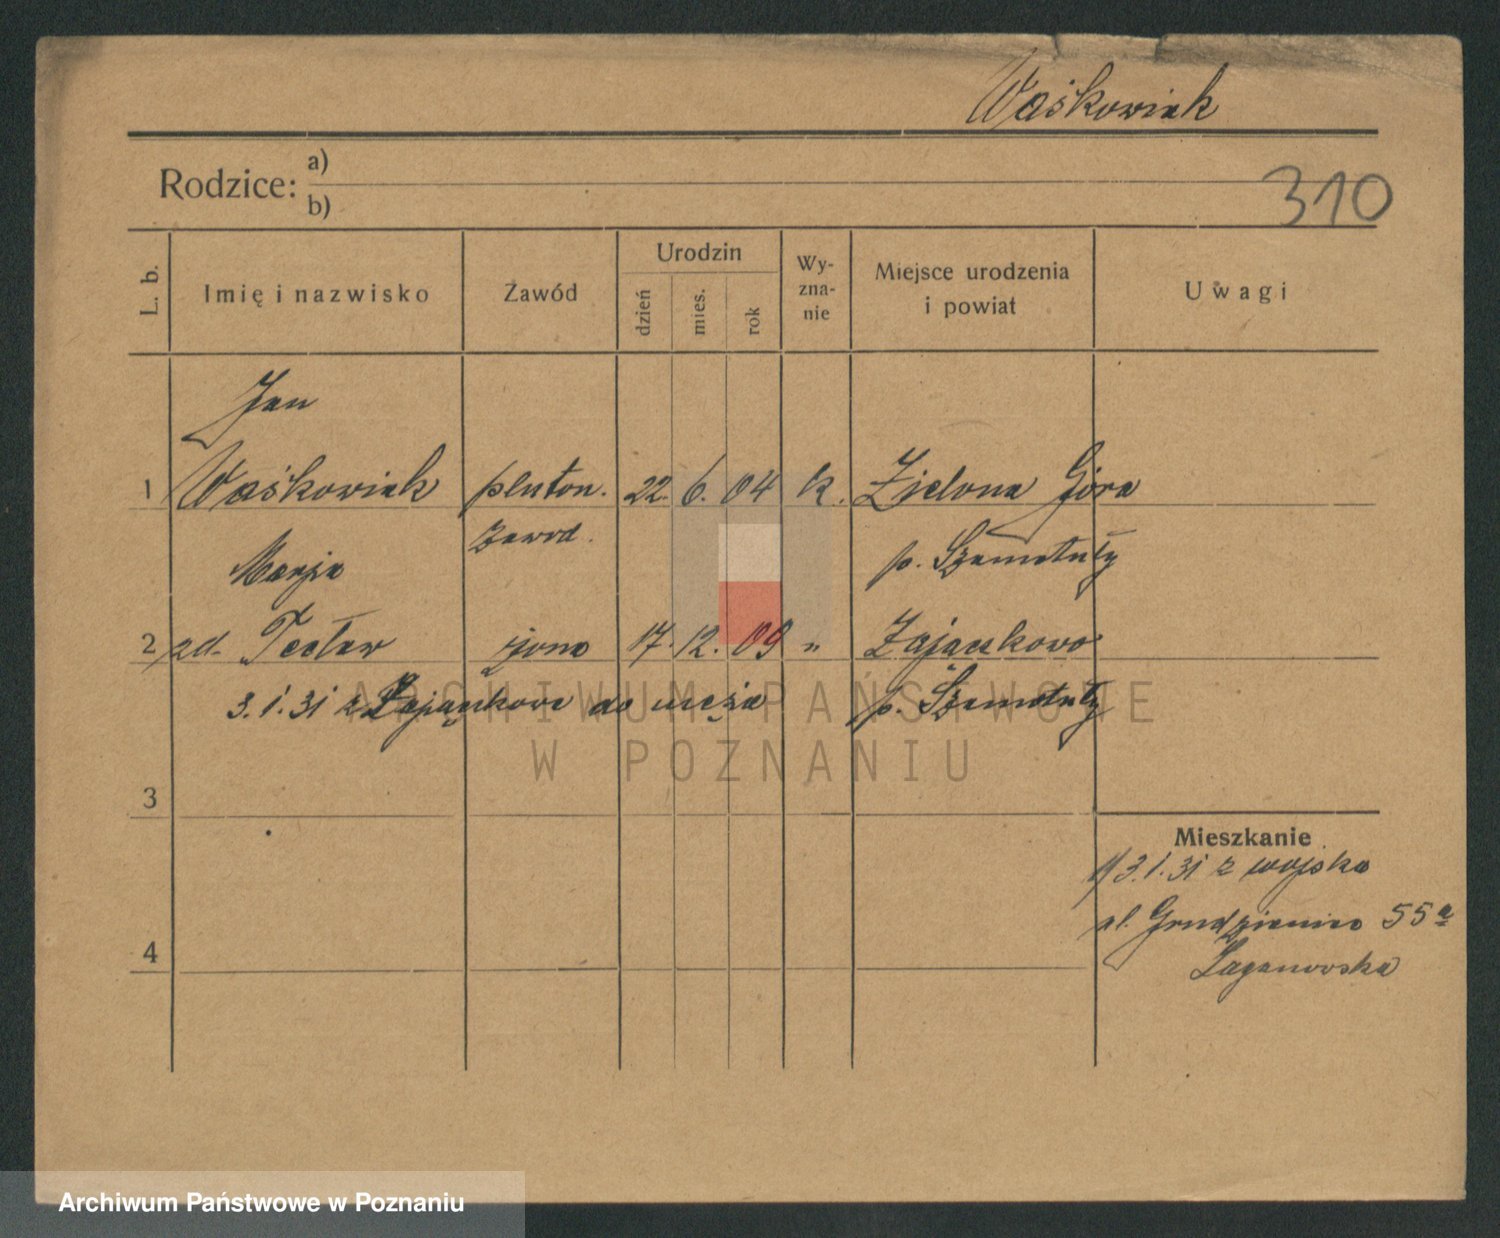 Waśkowiak
Rodzice: a)
b)
310
L. b.
Imię i nazwisko
Zawód
Urodzin
dzień
mies.
rok
Wy-
zna-
nie
Miejsce urodzenia
i powiat
Uwagi
Jan
1 Waśkowiak pluton. 22. 6. 04 k. Zielona Góra
zawod. p. Szamotuły
Marja
2 zd. Tecław żona 17. 12. 09 " Zajączkowo
3.1.31 z Zajączkowa do męża p. Szamotuły
ARCHIWUM PAŃSTWOWE
W POZNANIU
3
Mieszkanie
1/ 3.1.31 z wojska
ul. Grudzieniec 55a
4
Archiwum Państwowe w Poznaniu